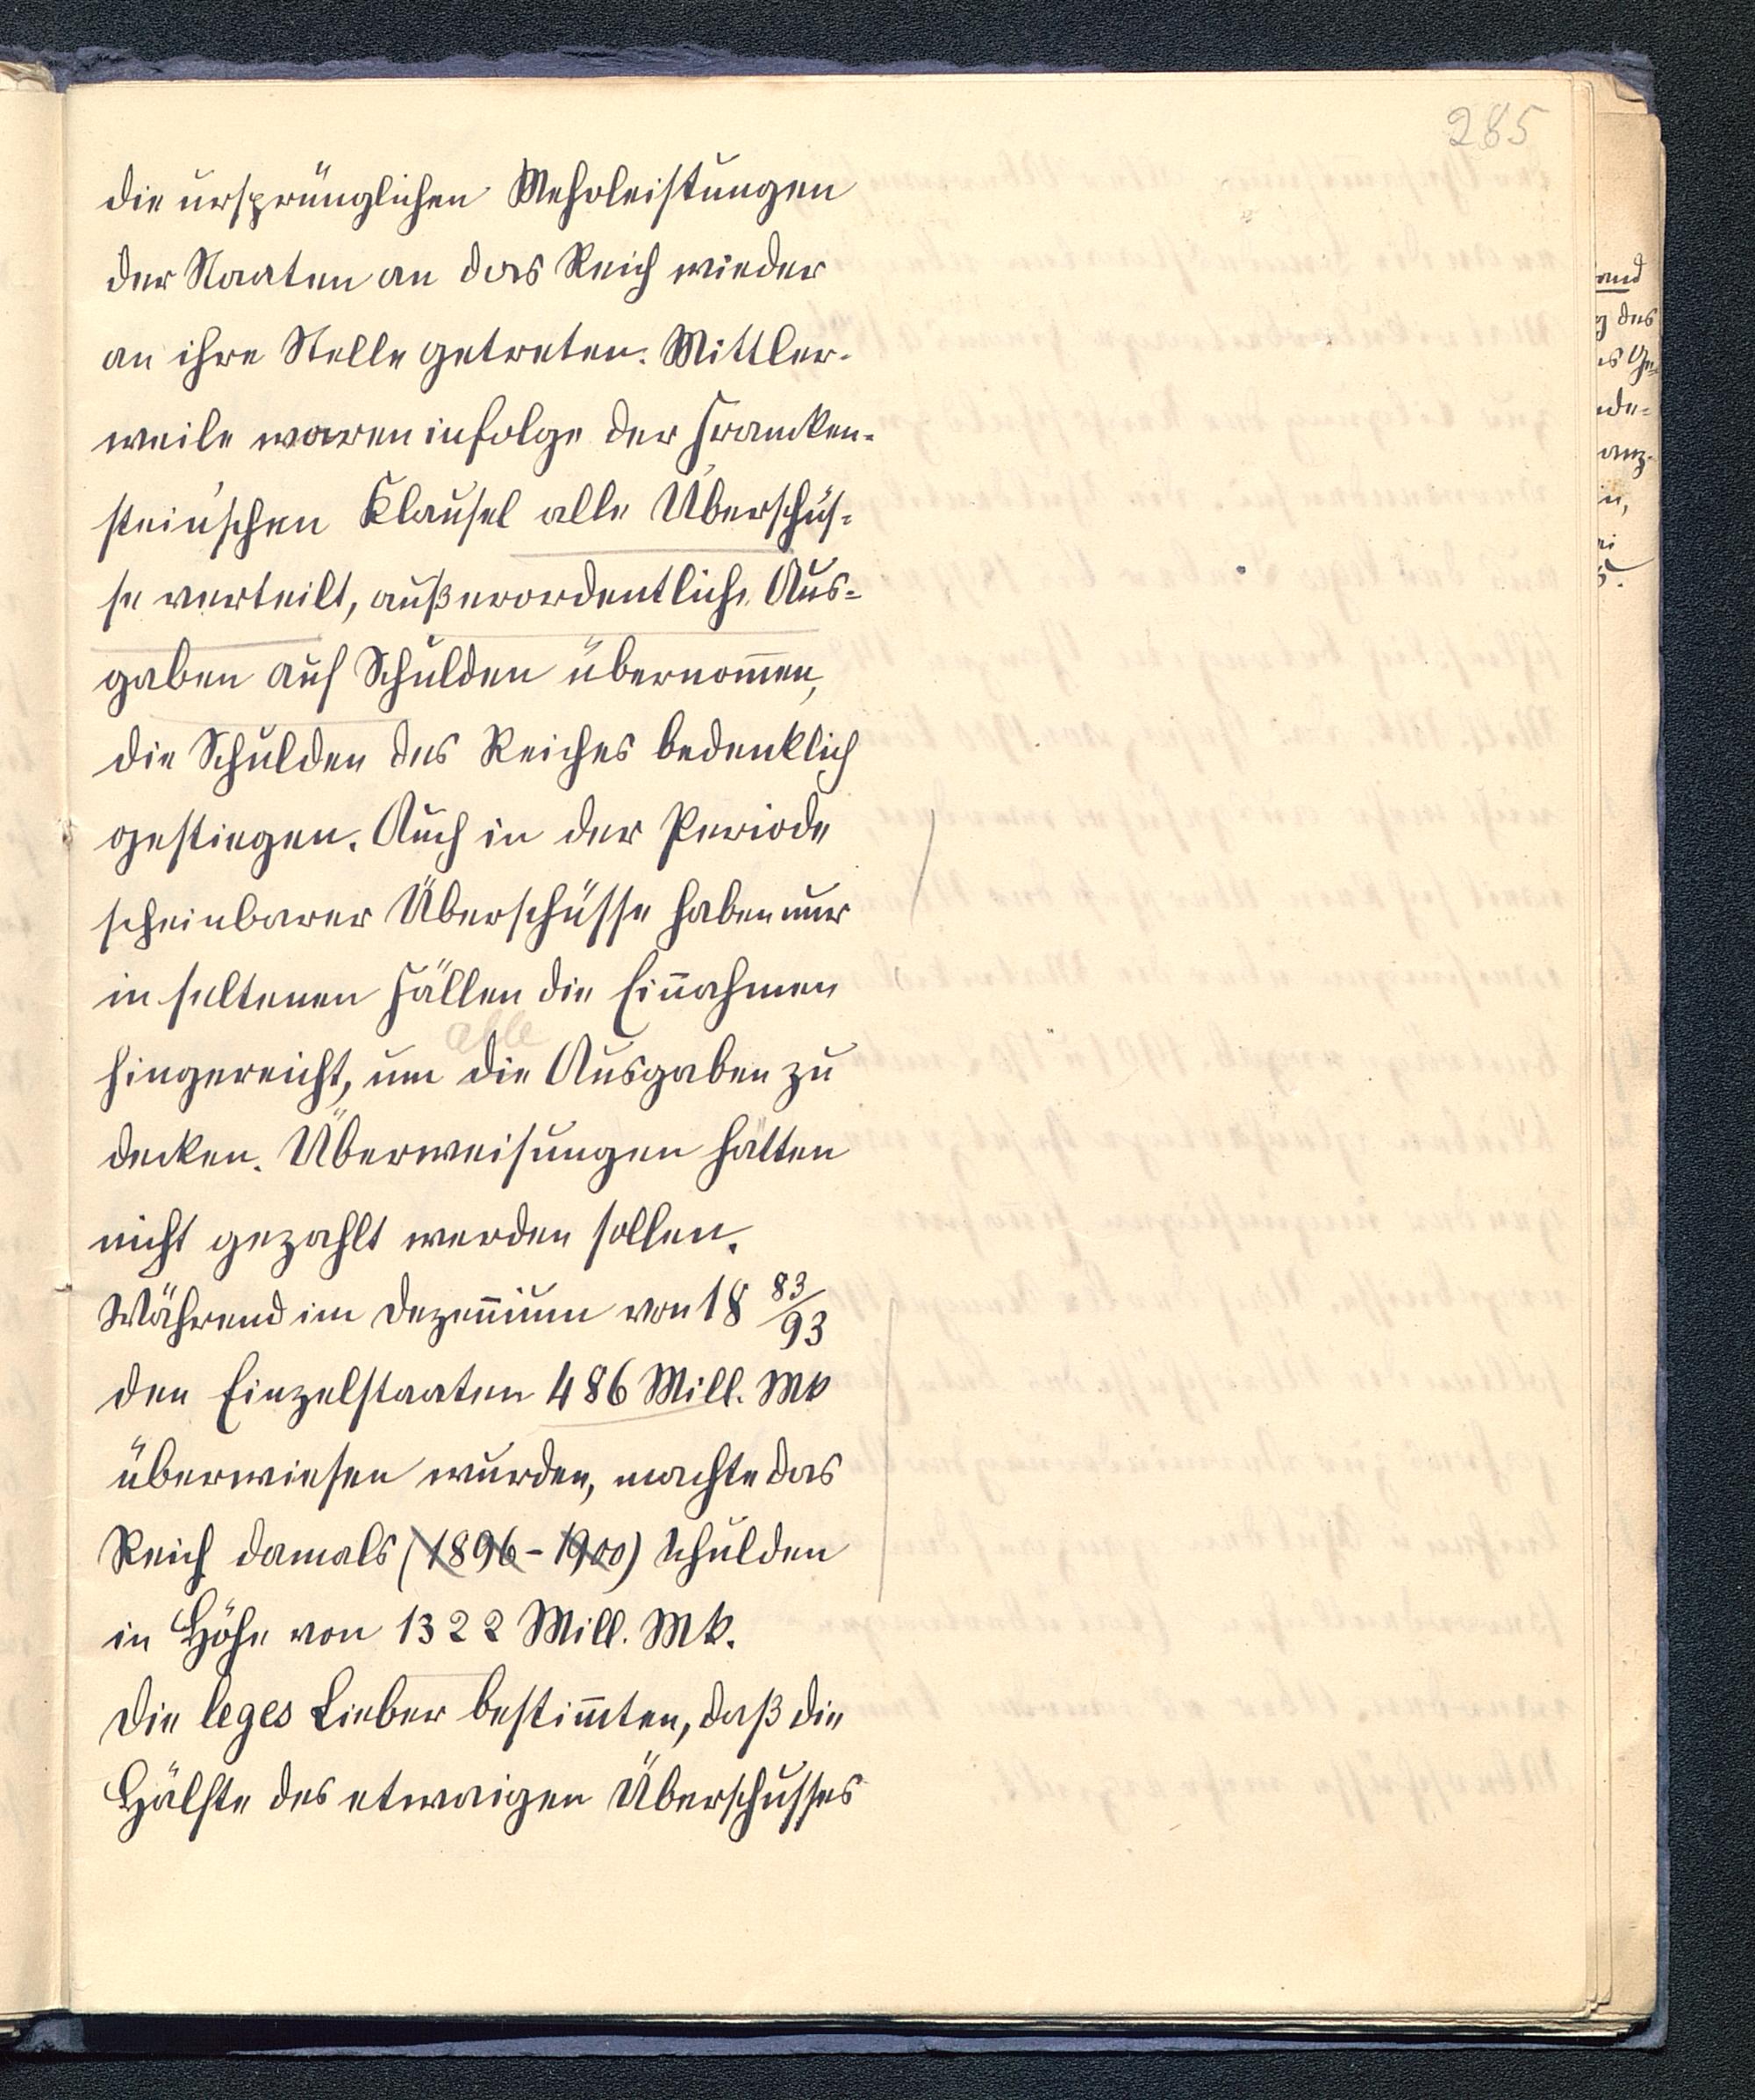 285
die ursprünglichen Mehrleistungen
der Staaten an das Reich wieder
an ihre Stelle getreten. Mittler-
weile waren infolge der Francken-
stein'schen Klausel alle Überschüs-
se verteilt, außerordentliche Aus-
gaben auf Schulden übernom̅en,
die Schulden des Reiches bedenklich
gestiegen. Auch in der Periode
scheinbarer Überschüsse haben nur
in seltenen Fällen die Ein̅ahmen
alle
hingereicht, um die Ausgaben zu
decken. Überweisungen hätten
nicht gezahlt werden sollen.
Während im Dezen̅ium von 18 83/93
den Einzelstaaten 486 Mill. Mk
überwiesen wurden, machte das
Reich damals (1896-1900) Schulden
in Höhe von 1322 Mill. Mk.
Die leges Lieber bestim̅ten, daß die
Hälfte des etwaigen Überschusses